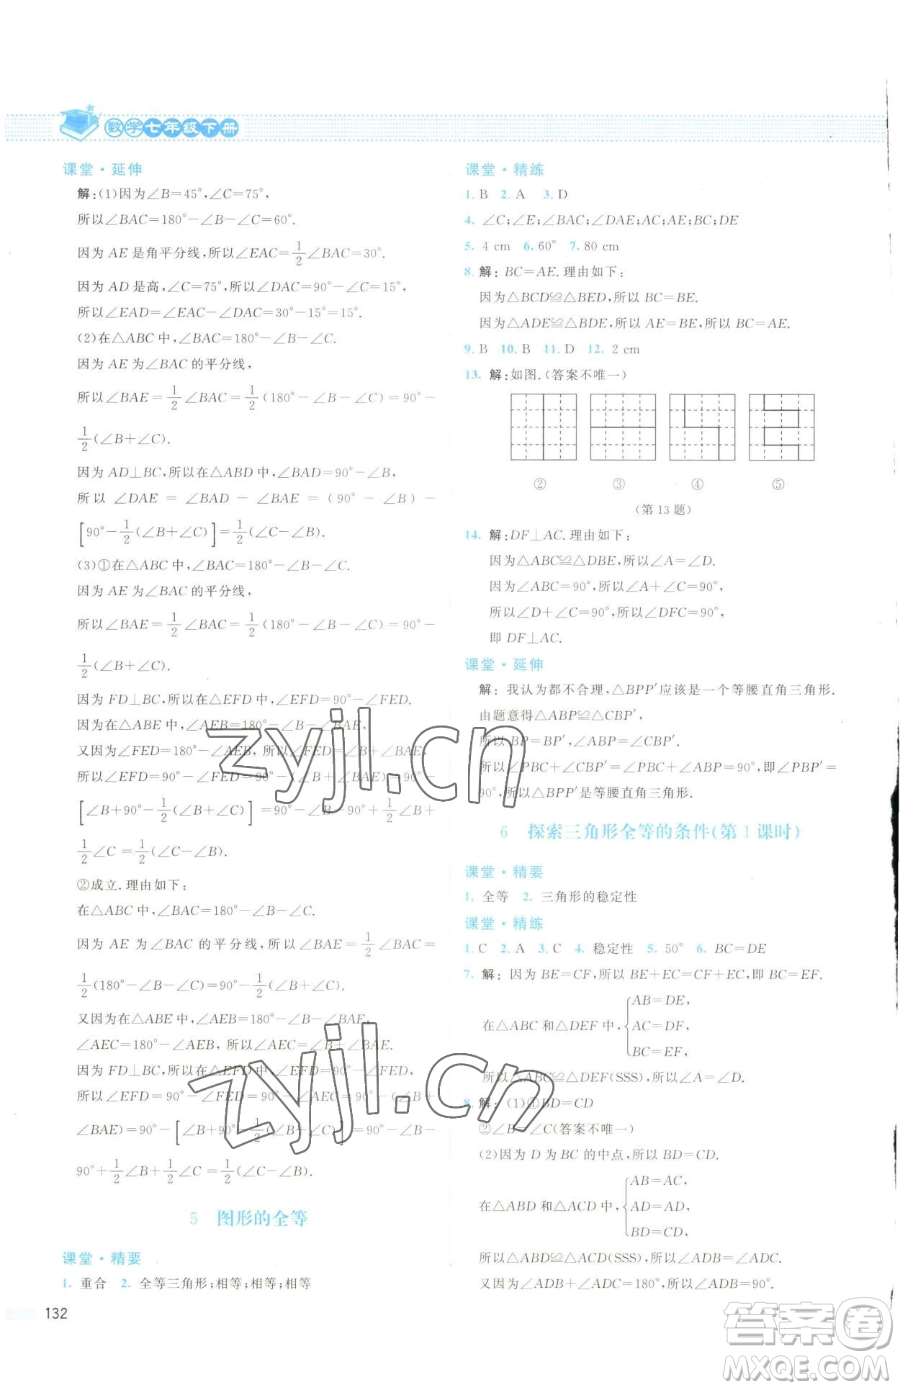 数学七年级下册
课堂·延伸
解:(1)因为∠B=45°,∠C=75°,
所以∠BAC=180°-∠B-∠C=60°.
因为 AE 是角平分线,所以∠EAC=1/2∠BAC=30°.
因为 AD 是高,∠C=75°,所以∠DAC=90°-∠C=15°,
所以∠EAD=∠EAC-∠DAC=30°-15°=15°.
(2)在△ABC 中,∠BAC=180°-∠B-∠C.
因为 AE 为∠BAC 的平分线,
所以∠BAE=1/2∠BAC=1/2(180°-∠B-∠C)=90°-
1/2(∠B+∠C).
因为 AD⊥BC,所以在△ABD 中,∠BAD=90°-∠B,
所以 ∠DAE = ∠BAD - ∠BAE = (90° - ∠B) -
[90°-1/2(∠B+∠C)]=1/2(∠C-∠B).
(3)①在△ABC 中,∠BAC=180°-∠B-∠C.
因为 AE 为∠BAC 的平分线,
所以∠BAE=1/2∠BAC=1/2(180°-∠B-∠C)=90°-
1/2(∠B+∠C).
因为 FD⊥BC,所以在△EFD 中,∠EFD=90°-∠FED.
因为在△ABE 中,∠AEB=180°-∠B-∠BAE,
又因为∠FED=180°-∠AEB,所以∠FED=∠B+∠BAE,
所以∠EFD=90°-∠FED=90°-(∠B+∠BAE)=90°-
[∠B+90°-1/2(∠B+∠C)]=90°-∠B-90°+1/2∠B+
1/2∠C=1/2(∠C-∠B).
②成立.理由如下:
在△ABC 中,∠BAC=180°-∠B-∠C.
因为 AE 为∠BAC 的平分线,所以∠BAE=1/2∠BAC=
1/2(180°-∠B-∠C)=90°-1/2(∠B+∠C).
又因为在△ABE 中,∠AEB=180°-∠B-∠BAE,
∠AEC=180°-∠AEB,所以∠AEC=∠B+∠BAE,
因为 FD⊥BC,所以在△EFD 中,∠EFD=90°-∠FED.
所以∠EFD=90°-∠FED=90°-∠AEC=90°-(∠B+
∠BAE)=90°-[∠B+90°-1/2(∠B+∠C)]=90°-∠B-
90°+1/2∠B+1/2∠C=1/2(∠C-∠B).
5 图形的全等
课堂·精要
1. 重合 2. 全等三角形;相等;相等;相等
132
课堂·精练
1. B 2. A 3. D
4. ∠C;∠E;∠BAC;∠DAE;AC;AE;BC;DE
5. 4 cm 6. 60° 7. 80 cm
8. 解: BC=AE.理由如下:
因为△BCD≌△BED,所以 BC=BE.
因为△ADE≌△BDE,所以 AE=BE,所以 BC=AE.
9. B 10. B 11. D 12. 2 cm
13. 解:如图.(答案不唯一)
② ③ ④ ⑤
(第 13 题)
14. 解: DF⊥AC.理由如下:
因为△ABC≌△DBE,所以∠A=∠D.
因为∠ABC=90°,所以∠A+∠C=90°,
所以∠D+∠C=90°,所以∠DFC=90°,
即 DF⊥AC.
课堂·延伸
解: 我认为都不合理,△BPP′应该是一个等腰直角三角形.
由题意得△ABP≌△CBP′,
所以 BP=BP′,∠ABP=∠CBP′.
所以∠PBC+∠CBP′=∠PBC+∠ABP=90°,即∠PBP′=
90°,所以△BPP′是等腰直角三角形.
6 探索三角形全等的条件(第 1 课时)
课堂·精要
1. 全等 2. 三角形的稳定性
课堂·精练
1. C 2. A 3. C 4. 稳定性 5. 50° 6. BC=DE
7. 解: 因为 BE=CF,所以 BE+EC=CF+EC,即 BC=EF.
在△ABC 和△DEF 中,{AB=DE,
AC=DF,
BC=EF,
所以△ABC≌△DEF(SSS).
8. 解: (1)①BD=CD
②∠B=∠C(答案不唯一)
(2)因为 D 为 BC 的中点,所以 BD=CD.
在△ABD 和△ACD 中,{AB=AC,
AD=AD,
BD=CD,
所以△ABD≌△ACD(SSS),所以∠ADB=∠ADC.
又因为∠ADB+∠ADC=180°,所以∠ADB=90°.
zyjl.cn
zyjl.cn
答案卷
MXQE.COM